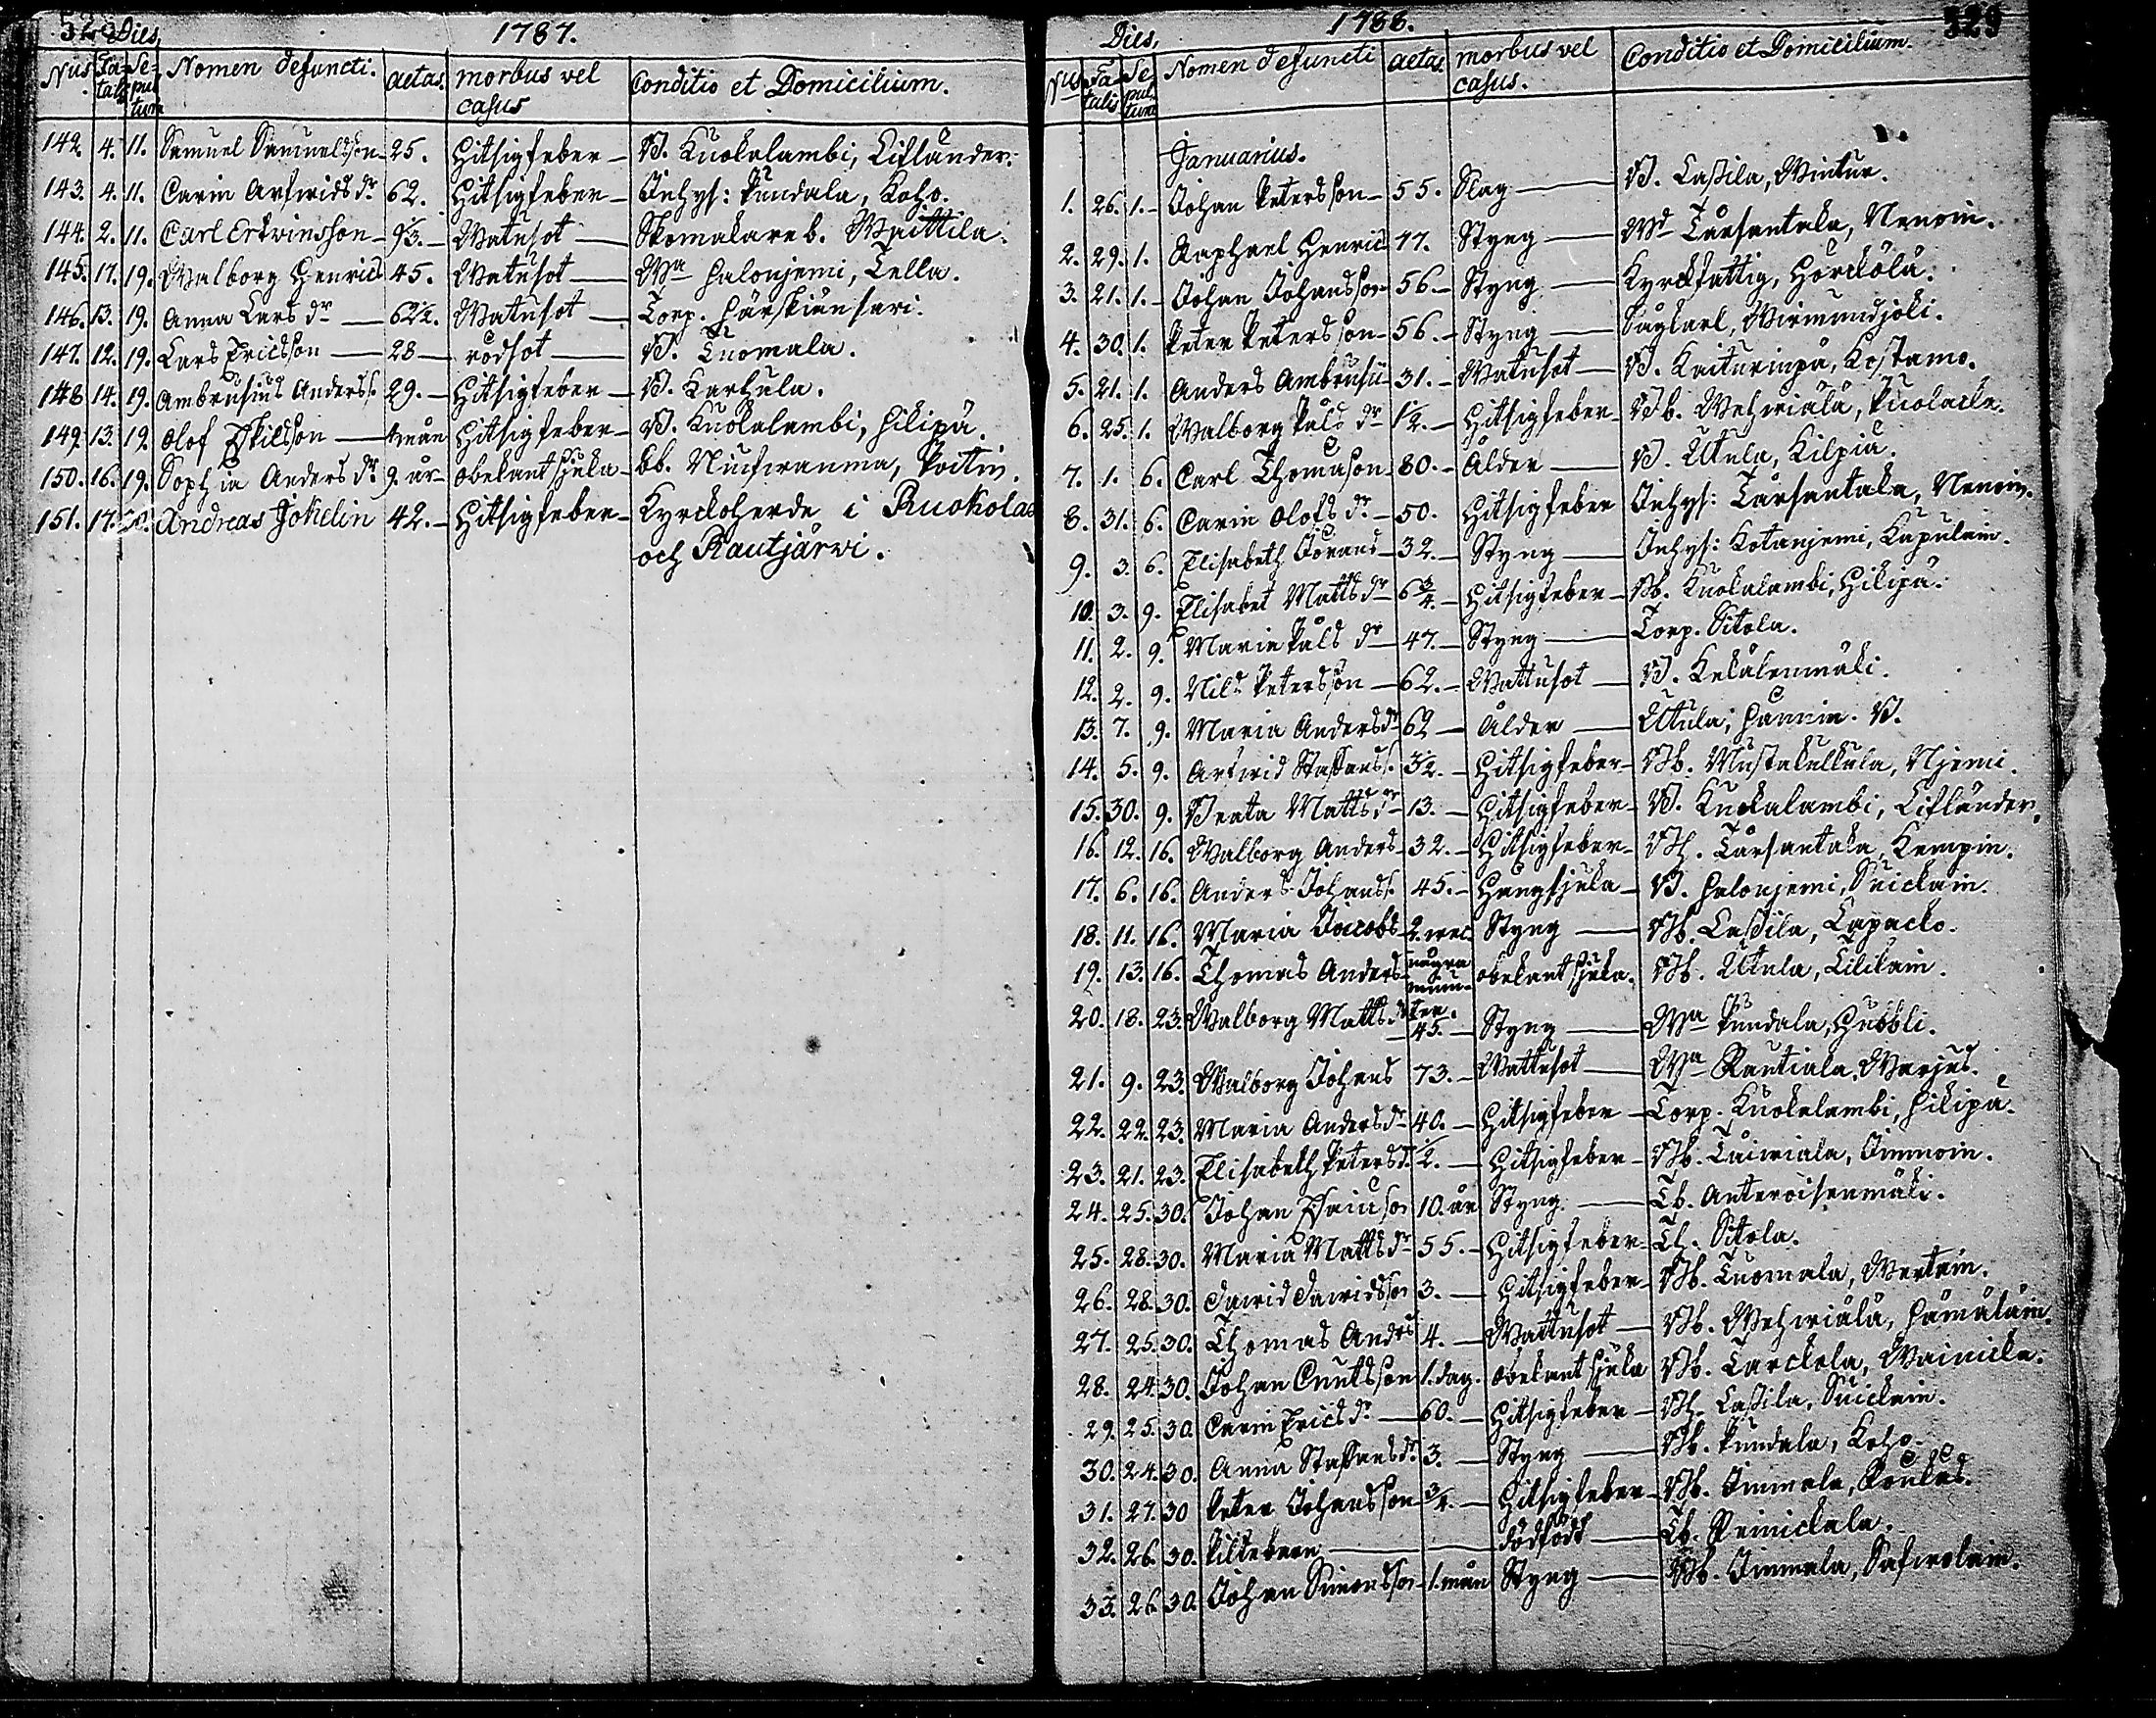 528 Dies, 1787.
Nus. Fatalis Sepultura Nomen defuncti. aetas. morbus vel casus Conditio et Domicilium.
142. 4. 11. Samuel Samuelsson 25. Hitsigfeber B. Kuokalambi, Lifländer.
143. 4. 11. Carin Arfvids dr 62. Hitsigfeber Inhys: Pundala, Koho.
144. 2. 11. Carl Ertvinsson Watusot Skomakare b. Waittila.
145. 17. 19. Walborg Henrics 45. Watusot Ma Salonjemi, Tella.
146. 13. 19. Anna Lars dr 62 1/2. Watusot Torp. Härskiänsari.
147. 12. 19. Lars Ericsson 28 rödsot B. Tuomala.
148 14. 19. Ambrusius Anderss. 29. Hitsigfeber B. Karhula.
149. 13. 19. Olof Eskilsson 4 mån Hitsigfeber B. Kuokalambi, Hilipä.
150. 16. 19. Sophia Anders dr 9. år obekant sjuka bb. Niusiranma, Poitin.
151. 17. 20. Andreas Jokelin 42. Hitsigfeber Kyrckoherde i Ruokolax
och Rautjärwi.
Dies, 1788. 529
Nus Fatalis Sepultura Nomen defuncti aetas morbus vel casus. Conditio et Domicilium.
Januarius.
1. 26. 1. Johan Petersson 55. Slag B. Lassila, Wintur.
2. 29. 1. Raphael Henrics 47. Styng Md Tarsantaka, Nenoin.
3. 21. 1. Johan Johansson 56 Styng Kyrckfattig, Härckölä.
4. 30. 1. Peter Petersson 56. Styng Sågkarl, Wirmundjoki.
5. 21. 1. Anders Ambrusii 31. Watusot B. Kaiturinpä, Kostamo.
6. 25. 1. Walborg Påls dr 1/2. Hitsigfeber Bb. Wehwiälä, Puolacka.
7. 1. 6. Carl Thomason 80. Ålder B. Utula, Kilpiä.
8. 31. 6. Carin Olofs dr 50. Hitsigfeber Inhys: Tarsantaka, Nenoin.
9. 3. 6. Elisabeth Görans 32. Styng Inhys: Kotanjemi, Kapulain.
10. 3. 9. Elisabet Matts dr 6 3/4. Hitsigfeber Bb. Kuokalambi, Hilipä.
11. 2. 9. Maria Påls dr 47. Styng Torp. Sitola.
12. 2. 9. Nils Petersson 62. Wattusot B. Kekälenmäki.
13. 7. 9. Maria Anders dr 62 Ålder Utula, Hannin. B.
14. 5. 9. Arfwid Staffanss. 3/2. Hitsigfeber Bb. Mustakullula, Njemi.
15. 30. 9. Beata Matts dr 13. Hitsigfeber B. Kuokalambi, Lifländer.
16. 12. 16. Walborg Anders 32. Hitsigfeber Bh. Tarsantaka, Kempin.
17. 6. 16. Anders Johanss. 45. Hungsjuka B. Salonjemi, Suickain.
18. 11. 16. Maria Jacobs 2. wec Styng Bb. Lassila, Lapacko.
19. 13. 16. Thomas Anders några minuter. obekant sjuka. Bb. Utula, Lilikain.
20. 18. 23. Walborg Matts dr 45. Styng Ma Pundala, Hubbli.
21. 9. 23. Walborg Johans 73. Wattusot Ma Rautiala, Warjus.
22. 22. 23. Maria Anders dr 40. Hitsigfeber Torp. Kuokalambi, Hilipä.
23. 21. 23. Elisabeth Peters dr 1/2. Hitsigfeber Bb. Täiwiala, Immoin.
24. 25. 30. Johan Esaiæson 10. år Styng Tb. Anteroisenmäki.
25. 28. 30. Maria Matts dr 55. Hitsigfeber Th. Sitola.
26. 28. 30. David Davidsson 3. Hitsigfeber Bb. Tuomala, Wertain.
27. 25. 30. Thomas Anders 4. Wattusot Bb. Wehwiälä, Hämäläin.
28. 24. 30. Johan Cnutsson 1. dag. obekant sjuka Bb. Tarckola, Wainicka.
29. 25. 30. Carin Erics dr 60. Hitsigfeber Bh. Lassila, Suickain.
30. 24. 30. Anna Staffans dr 3. Styng Bb. Pundala, Koho.
31. 27. 30 Peter Johansson 3/4. Hitsigfeber Bb. Immala, Poukas.
32. 26. 30. Piltebarn dödfödt Tb. Reinickala.
33. 26. 30. Johan Simonsson 1. mån Styng Bb. Immala, Safwolain.